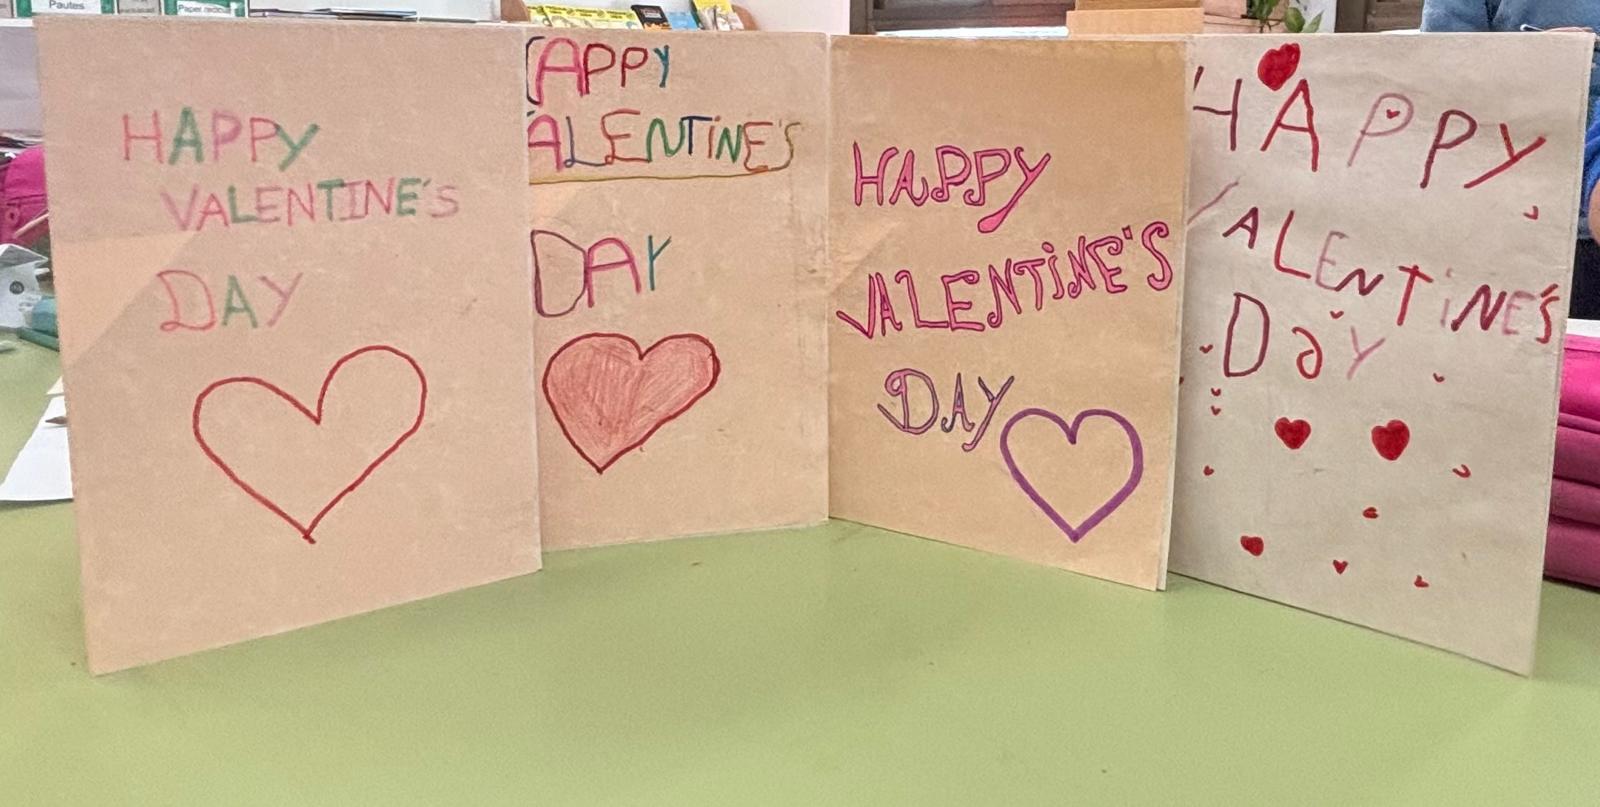 Pautes
Paper reciclat
HAPPY
VALENTINE'S
DAY
APPY
ALENTINE'S
DAY
HAPPY
VALENTINE'S
DAY
HAPPY
VALENTINE'S
Day